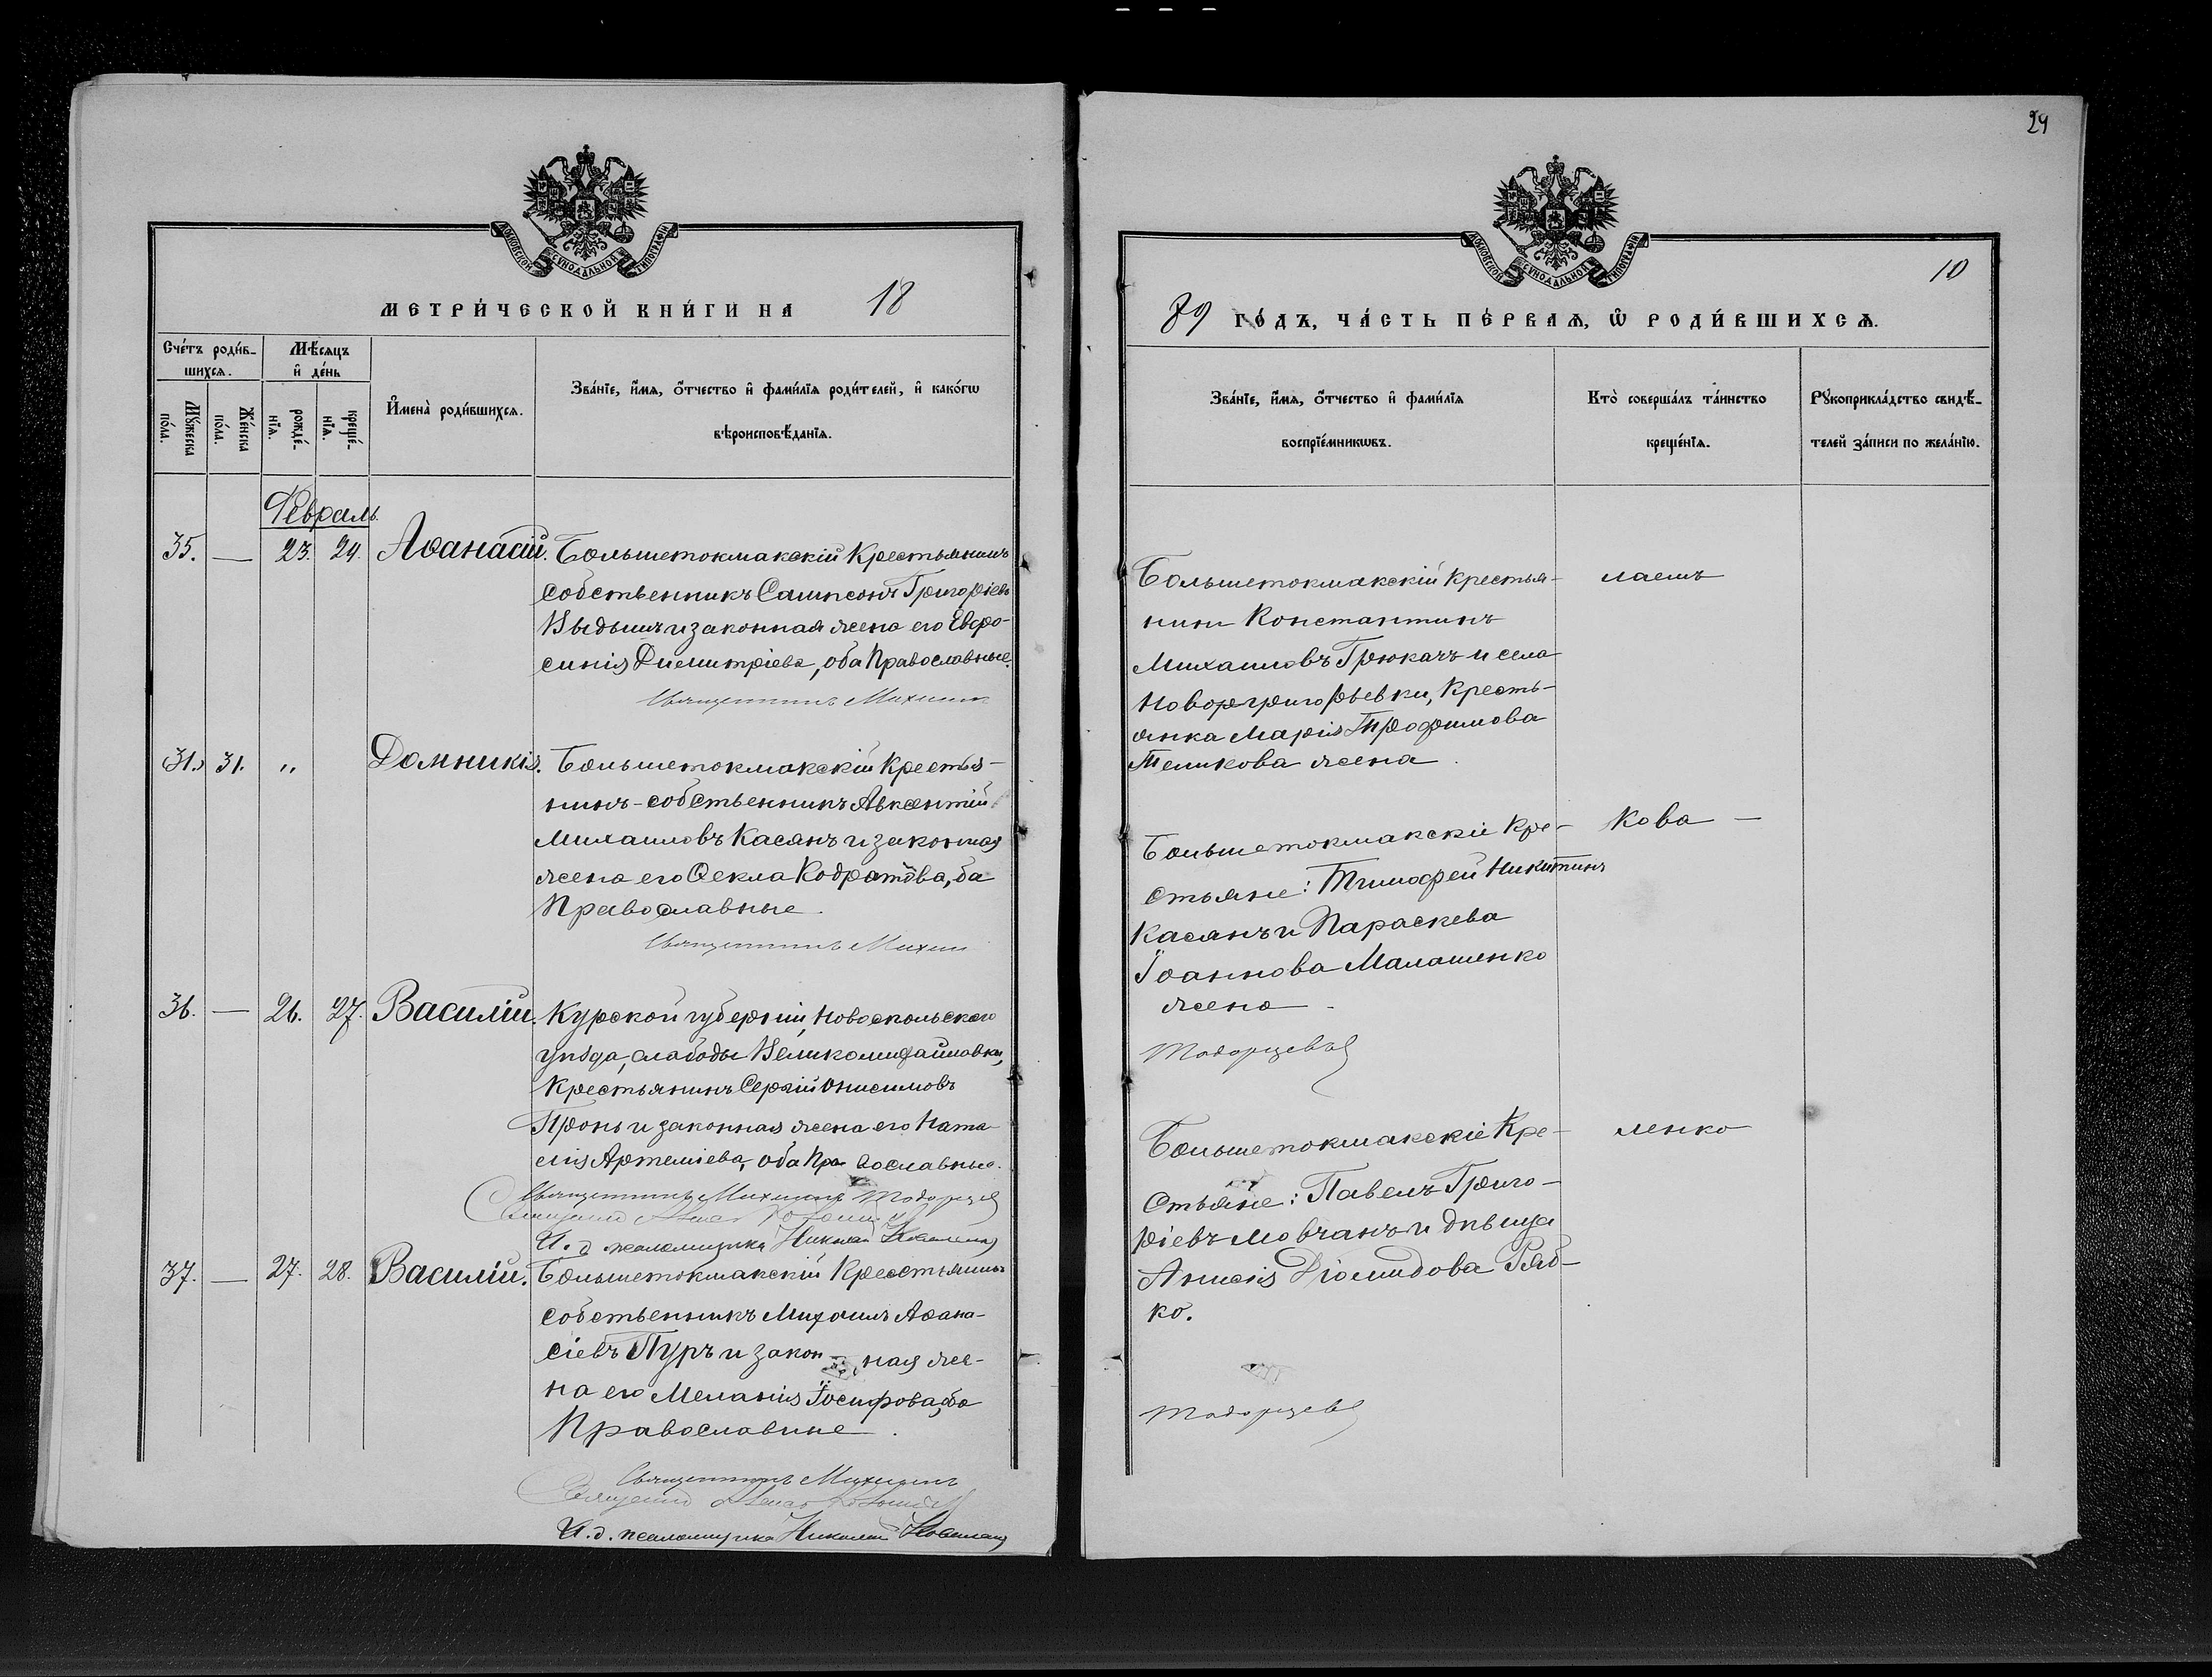 24
МОСКОВСКОЙ СѴНОДАЛЬНОЙ ТИПОГРАФІИ
МЕТРИ́ЧЕСКОЙ КНИ́ГИ НА 18
Сче́тъ роди́в-
шихсѧ.
Мѣ́сѧцъ
и҆ де́нь
Мꙋ́жеска по́ла.
Же́нска по́ла.
рожде́-нїѧ.
креще́-нїѧ.
И҆мена̀ роди́вшихсѧ.
Зва́нїе, и҆́мѧ, ѻ҆́тчество и҆ фами́лїѧ роди́телей, и҆ како́гѡ
вѣроисповѣ́данїѧ.
Февраль.
35. — 23. 24. Аѳанасій. Большетокмакскій крестьянинъ
собственникъ Сампсонъ Григоріевъ
и законная жена его Евфро-
синія Димитріева, оба Православные.
Священникъ Михаилъ
(31.) 31. „ Домникія. Большетокмакскій крестья-
нинъ-собственникъ Авксентій
Михаиловъ Касянъ и законная
жена его Ѳекла Кодратова, оба
Православные.
Священникъ Михаил
36. — 26. 27. Василій. Курской губерніи, Новоскольскаго
уѣзда, слабоды Великомихайловки,
Крестьянинъ Сергій Онисимовъ
Пронь и законная жена его Ната-
лія Артеміева, оба Пра вославные.
Священникъ Михаилъ Тодорцев
И. д. псаломщика Николай
37. — 27. 28. Василій. Большетокмакскій Крестьянинъ
собственникъ Михаилъ Аѳана-
сіевъ Пуръ и закон-ная же-
на его Меланія Іосифова, оба
Православные.
Священникъ Михаилъ
И. д. псаломщика Николай
МОСКОВСКОЙ СѴНОДАЛЬНОЙ ТИПОГРАФІИ
10
89 ГО́ДЪ, ЧА́СТЬ ПЕ́РВАѦ, Ѡ҆ РОДИ́ВШИХСѦ.
Зва́нїе, и҆́мѧ, ѻ҆́тчество и҆ фами́лїѧ
воспрїе́мникѡвъ.
Кто̀ соверша́лъ та́инство
креще́нїѧ.
Рꙋкоприкла́дство свидѣ́-
телей за́писи по жела́нїю.
Большетокмакскій крестья- лаемъ
нинъ Константинъ
Михаиловъ Грюкачъ и села
Новогригорьевки, Кресть-
янка Марія Трофимова
Теликова жена.
Большетокмакскіе Кре- кова —
стьяне: Тимофей Никитинъ
Касянъ и Параскева
Іоаннова Малашенко
жена.
Тодорцевъ
Большетокмакскіе Кре- ленко
стьяне: Павелъ Григо-
ріевъ Мовчанъ и дѣвица
Анисія Діомидова Ряб-
ко.
Тодорцевъ